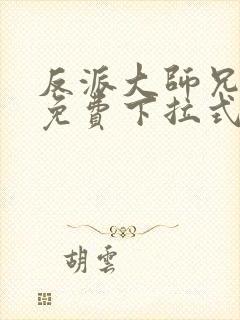 反派大師兄
免費下拉式
胡雲